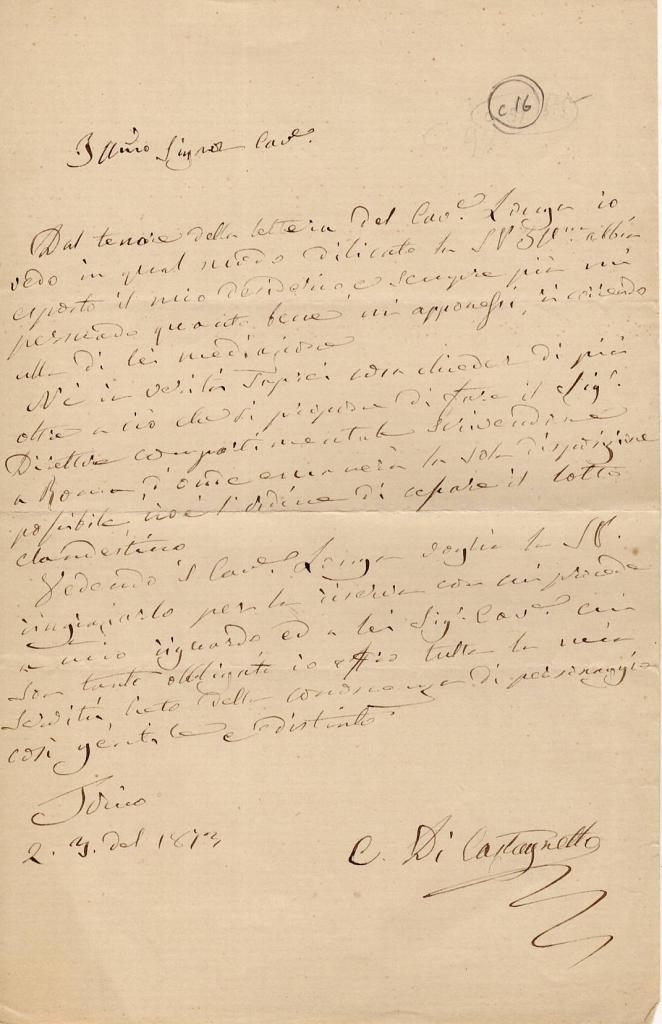 c 16
Illmo Signor Cave.
Dal tenore della lettera del Cave. Longa io
vedo in qual modo dilicato la SV Illma abbia
esposto il mio desiderio e sempre più mi
persuado quanto bene mi apponessi, ricorrendo
alla di lei mediazione
Nè in verità saprei cosa chieder di più
oltre a ciò che si propone di fare il Sigr.
Direttore compartimentale scrivendone
a Roma d'onde emanerà la sola disposizione
possibile, cioè l'ordine di cessare il lotto
clandestino
Vedendo il Cave. Longa voglia la SV.
ringraziarlo per la riserva con cui procede
a mio riguardo ed a lei Sigr. Cave. cui
son tanto obbligato io offro tutta la mia
servitù, lieto della conoscenza di personaggio
così gentile e distinto.
Torino
2. 3. del 1873
C. Di Castagnetto